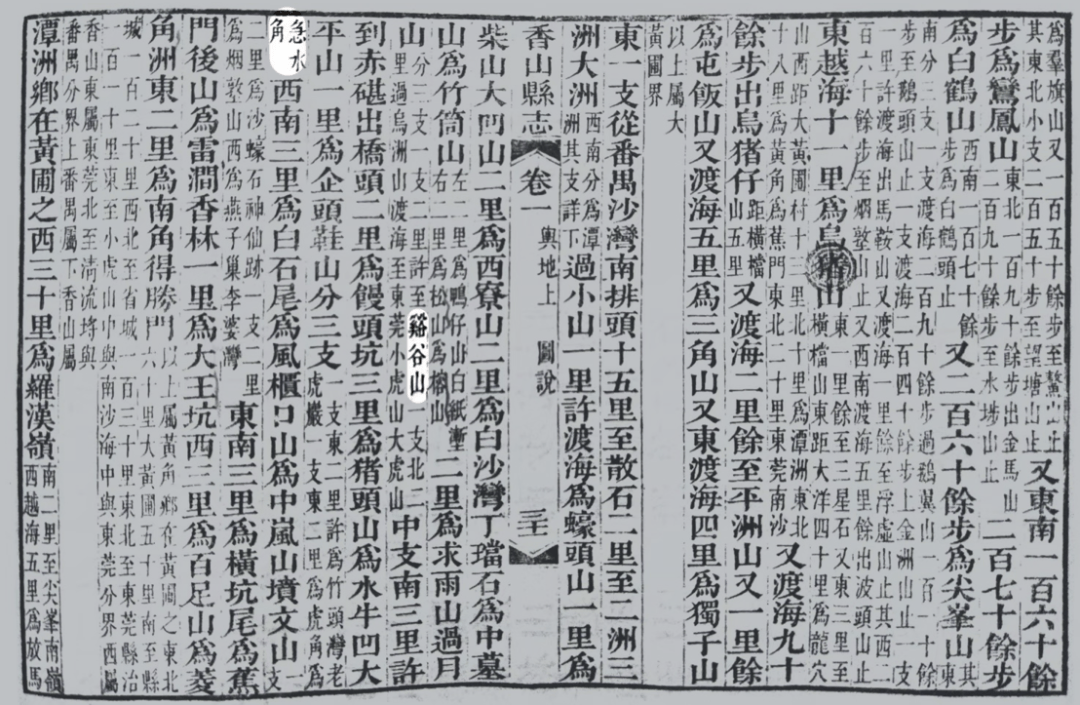 為羣旗山又一百五十餘步至鰲山止
其東北小支二百五十步至望塘山止又東南一百六十餘
步為鸞鳳山東北一百九十餘步出金馬山
二百九十餘步至水埗山止二百七十餘步
為白鶴山西南一百七十餘
步為白鶴頭止又二百六十餘步為尖峯山其東
南分三支一支渡海二百九十餘步過鵝翼山一百一十餘
步至鵝頭山止一支渡海二百四十餘步上金洲山止一支
一里許渡海出馬鞍山又渡海一里餘至浮虛山止其西二
百六十餘步至烟墪山止又西南渡海五里餘出波頭山止
東越海十一里為烏豬山東一里餘至三星石又東三里至
橫檔山東距大洋四十里為龍穴
山西距大黃圃村十三里北十里為潭洲東北
十八里為黃角為蕉門東北二十里東莞南沙又渡海九十
餘步出烏猪仔山距橫檔
五里又渡海二里餘至平洲山又一里餘
為屯飯山又渡海五里為三角山又東渡海四里為獨子山
以上屬大
黃圃界
東一支從番禺沙灣南排頭十五里至散石二里至二洲三
洲大洲西南分為潭
洲其支詳下過小山一里許渡海為蠔頭山一里為
香山縣志 卷一 輿地上 圖說
柴山大凹山二里為西寮山二里為白沙灣丁璫石為中墓
山為竹筒山左二里為鴨仔山白紙
右二里為松山為山二里為求雨山過月
山分三支一支二里許至谿谷山一支北二
里過烏洲山渡海至東莞小虎山大虎山中支南三里許
到赤磡出橋頭二里為饅頭坑三里為猪頭山為水牛凹大
平山一里為企頭鞋山分三支一支東二里許為竹頭灣老
虎巖一支東二里為虎角為
急水
角西南三里為白石尾為風櫃口山為中嵐山墳文山一支
二里為沙蠔石神仙跡一支二里
為烟墪山西為燕子巢李婆灣東南三里為橫坑尾為蕉
門後山為雷澗香林一里為大王坑西三里為百足山為菱
角洲東二里為南角得勝門以上屬黃角鄉在黃圃之東北
六十里大黃圃五十里南至縣
城一百二十里西北至省城一百三十里東北至東莞縣治
一百一十里東至小虎山中與南沙海中與東莞分界西屬
香山東屬東莞北至清流埓與
番禺分界上番禺屬下香山屬
潭洲鄉在黃圃之西三十里為羅漢嶺南二里至尖峯南嶺
西越海五里為放馬